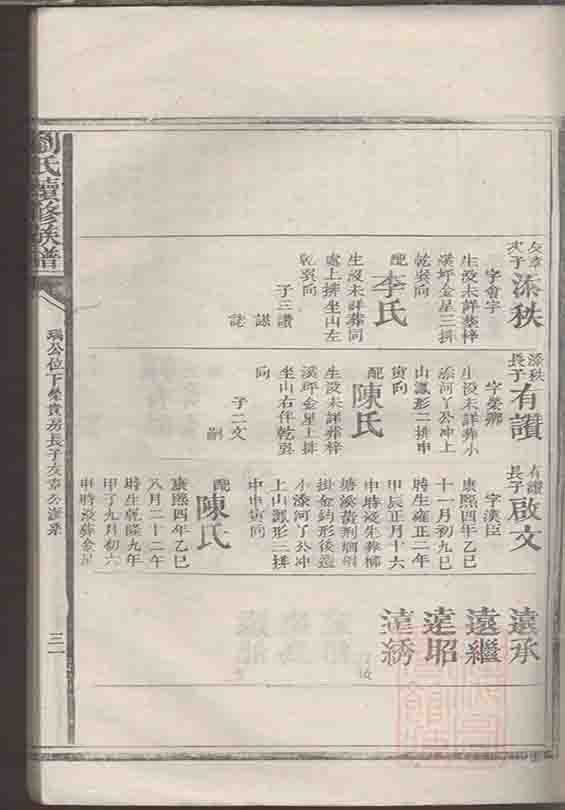 劉氏續修族譜
瑀公位下榮貴房長子友章公派系
三一
友章
次子
添秩
字會宇
生沒未詳葬梓
溪坪金星三排
乾巽向
配
李氏
生沒未詳葬同
處上排坐山左
乾巽向
子三讚
謀
誌
添秩
長子
有讚
字榮卿
生沒未詳葬小
添河丫公冲上
山鳳形二排申
寅向
配
陳氏
生沒未詳葬梓
溪坪金星上排
坐山右伴乾巽
向
子二文
嗣
有讚
長子
啟文
字漢臣
康熙四年乙巳
十一月初九巳
時生雍正二年
甲辰正月十六
申時沒先葬櫛
塘溪黃荊堌嗣
掛金鈎形後遷
小添河丫公冲
上山鳳形二排
中申寅向
配
陳氏
康熙四年乙巳
八月二十二午
時生乾隆九年
甲子九月初六
申時沒葬金星
遠承
遠繼
遠昭
遠綉